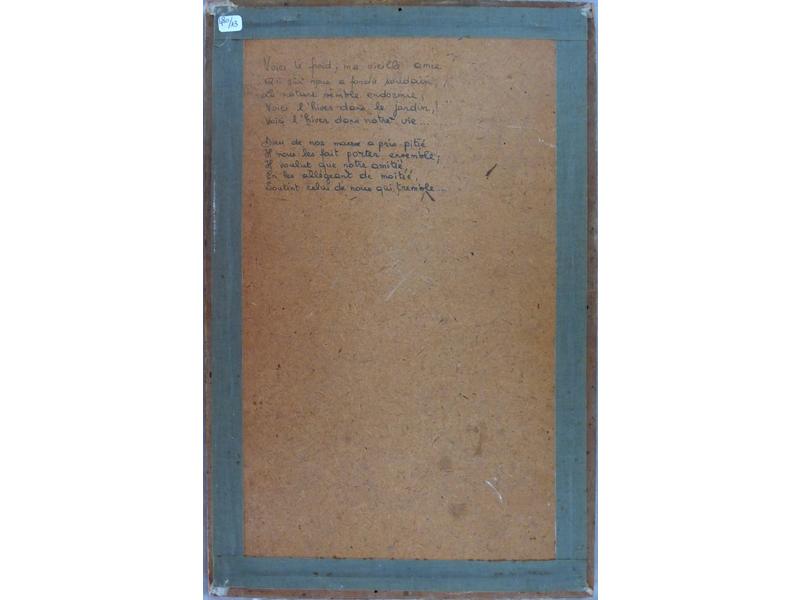 480/13
Voici le froid, ma vieille amie
Qui sur nous a fondu soudain,
La nature semble endormie,
Voici l'hiver dans le jardin,!
Voici l'hiver dans notre vie...
Dieu de nos maux a pris pitié
Il nous les fait porter ensemble;
Il voulut que notre amitié,
En les allégeant de moitié,
Soutint celui de nous qui tremble...